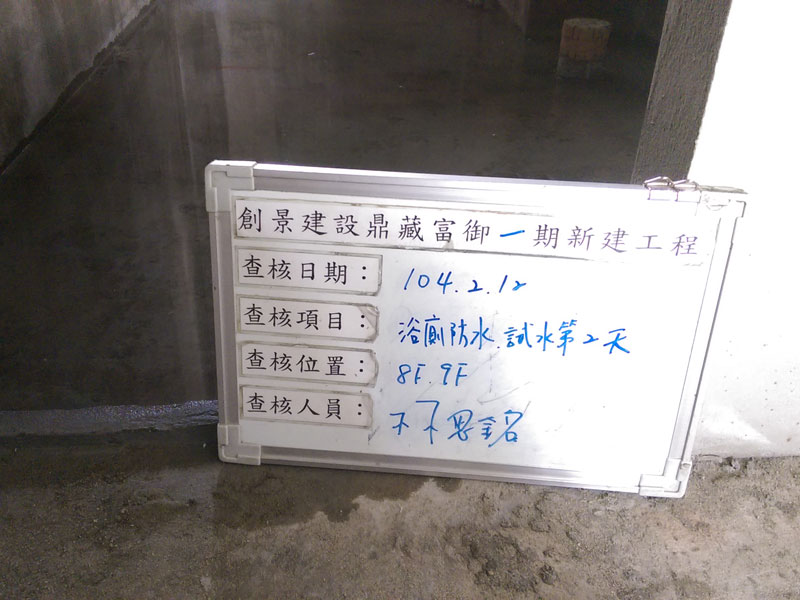 創景建設鼎藏富御一期新建工程
查核日期：104.2.12
查核項目：浴廁防水.試水第2天
查核位置：8F.9F
查核人員：